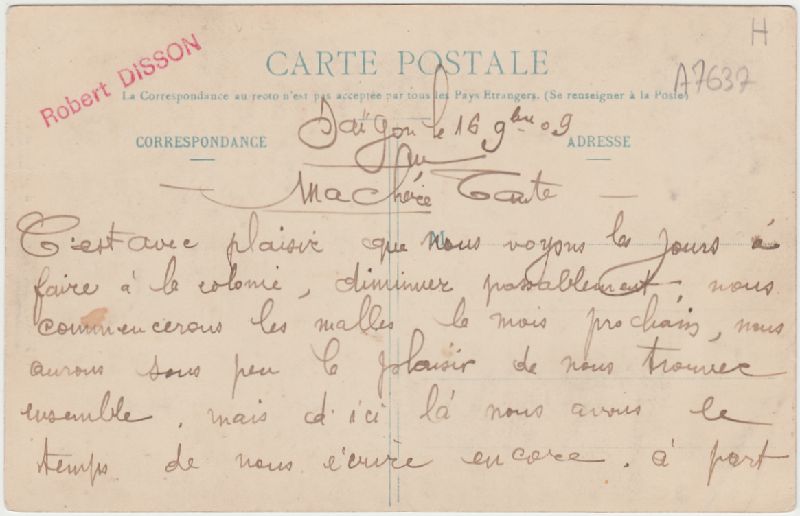 H
Robert DISSON
CARTE POSTALE
A7637
La Correspondance au recto n'est pas acceptée par tous les Pays Etrangers. (Se renseigner à la Poste)
Saïgon le 16 9bre 09
CORRESPONDANCE
ADRESSE
Ma Chère Tante
C'est avec plaisir que nous voyons les jours à
faire à la colonie, diminuer passablement, nous
commencerons les malles le mois prochain, nous
aurons sous peu le plaisir de nous trouver
ensemble, mais d'ici là nous avons le
temps de nous écrire encore. à part